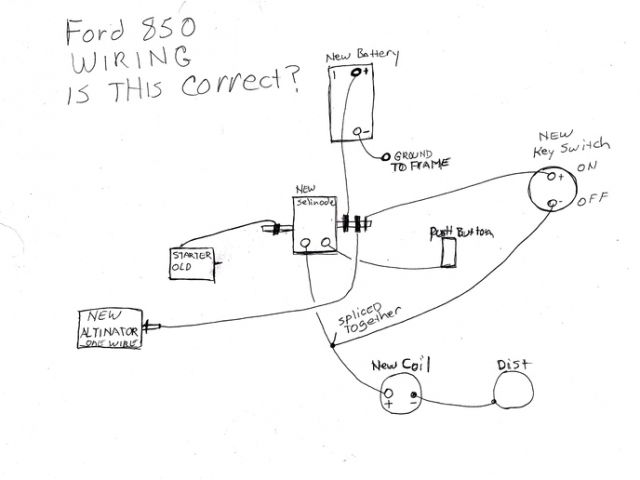 Ford 850
WIRING
IS THIS Correct?
New Battery
+
-
GROUND
TO FRAME
NEW
Key Switch
ON
+
-
OFF
NEW
Selinode
Push Button
STARTER
OLD
NEW
ALTINATOR
ONE WIRE
SPLICED
TOGETHER
New Coil
+
-
Dist